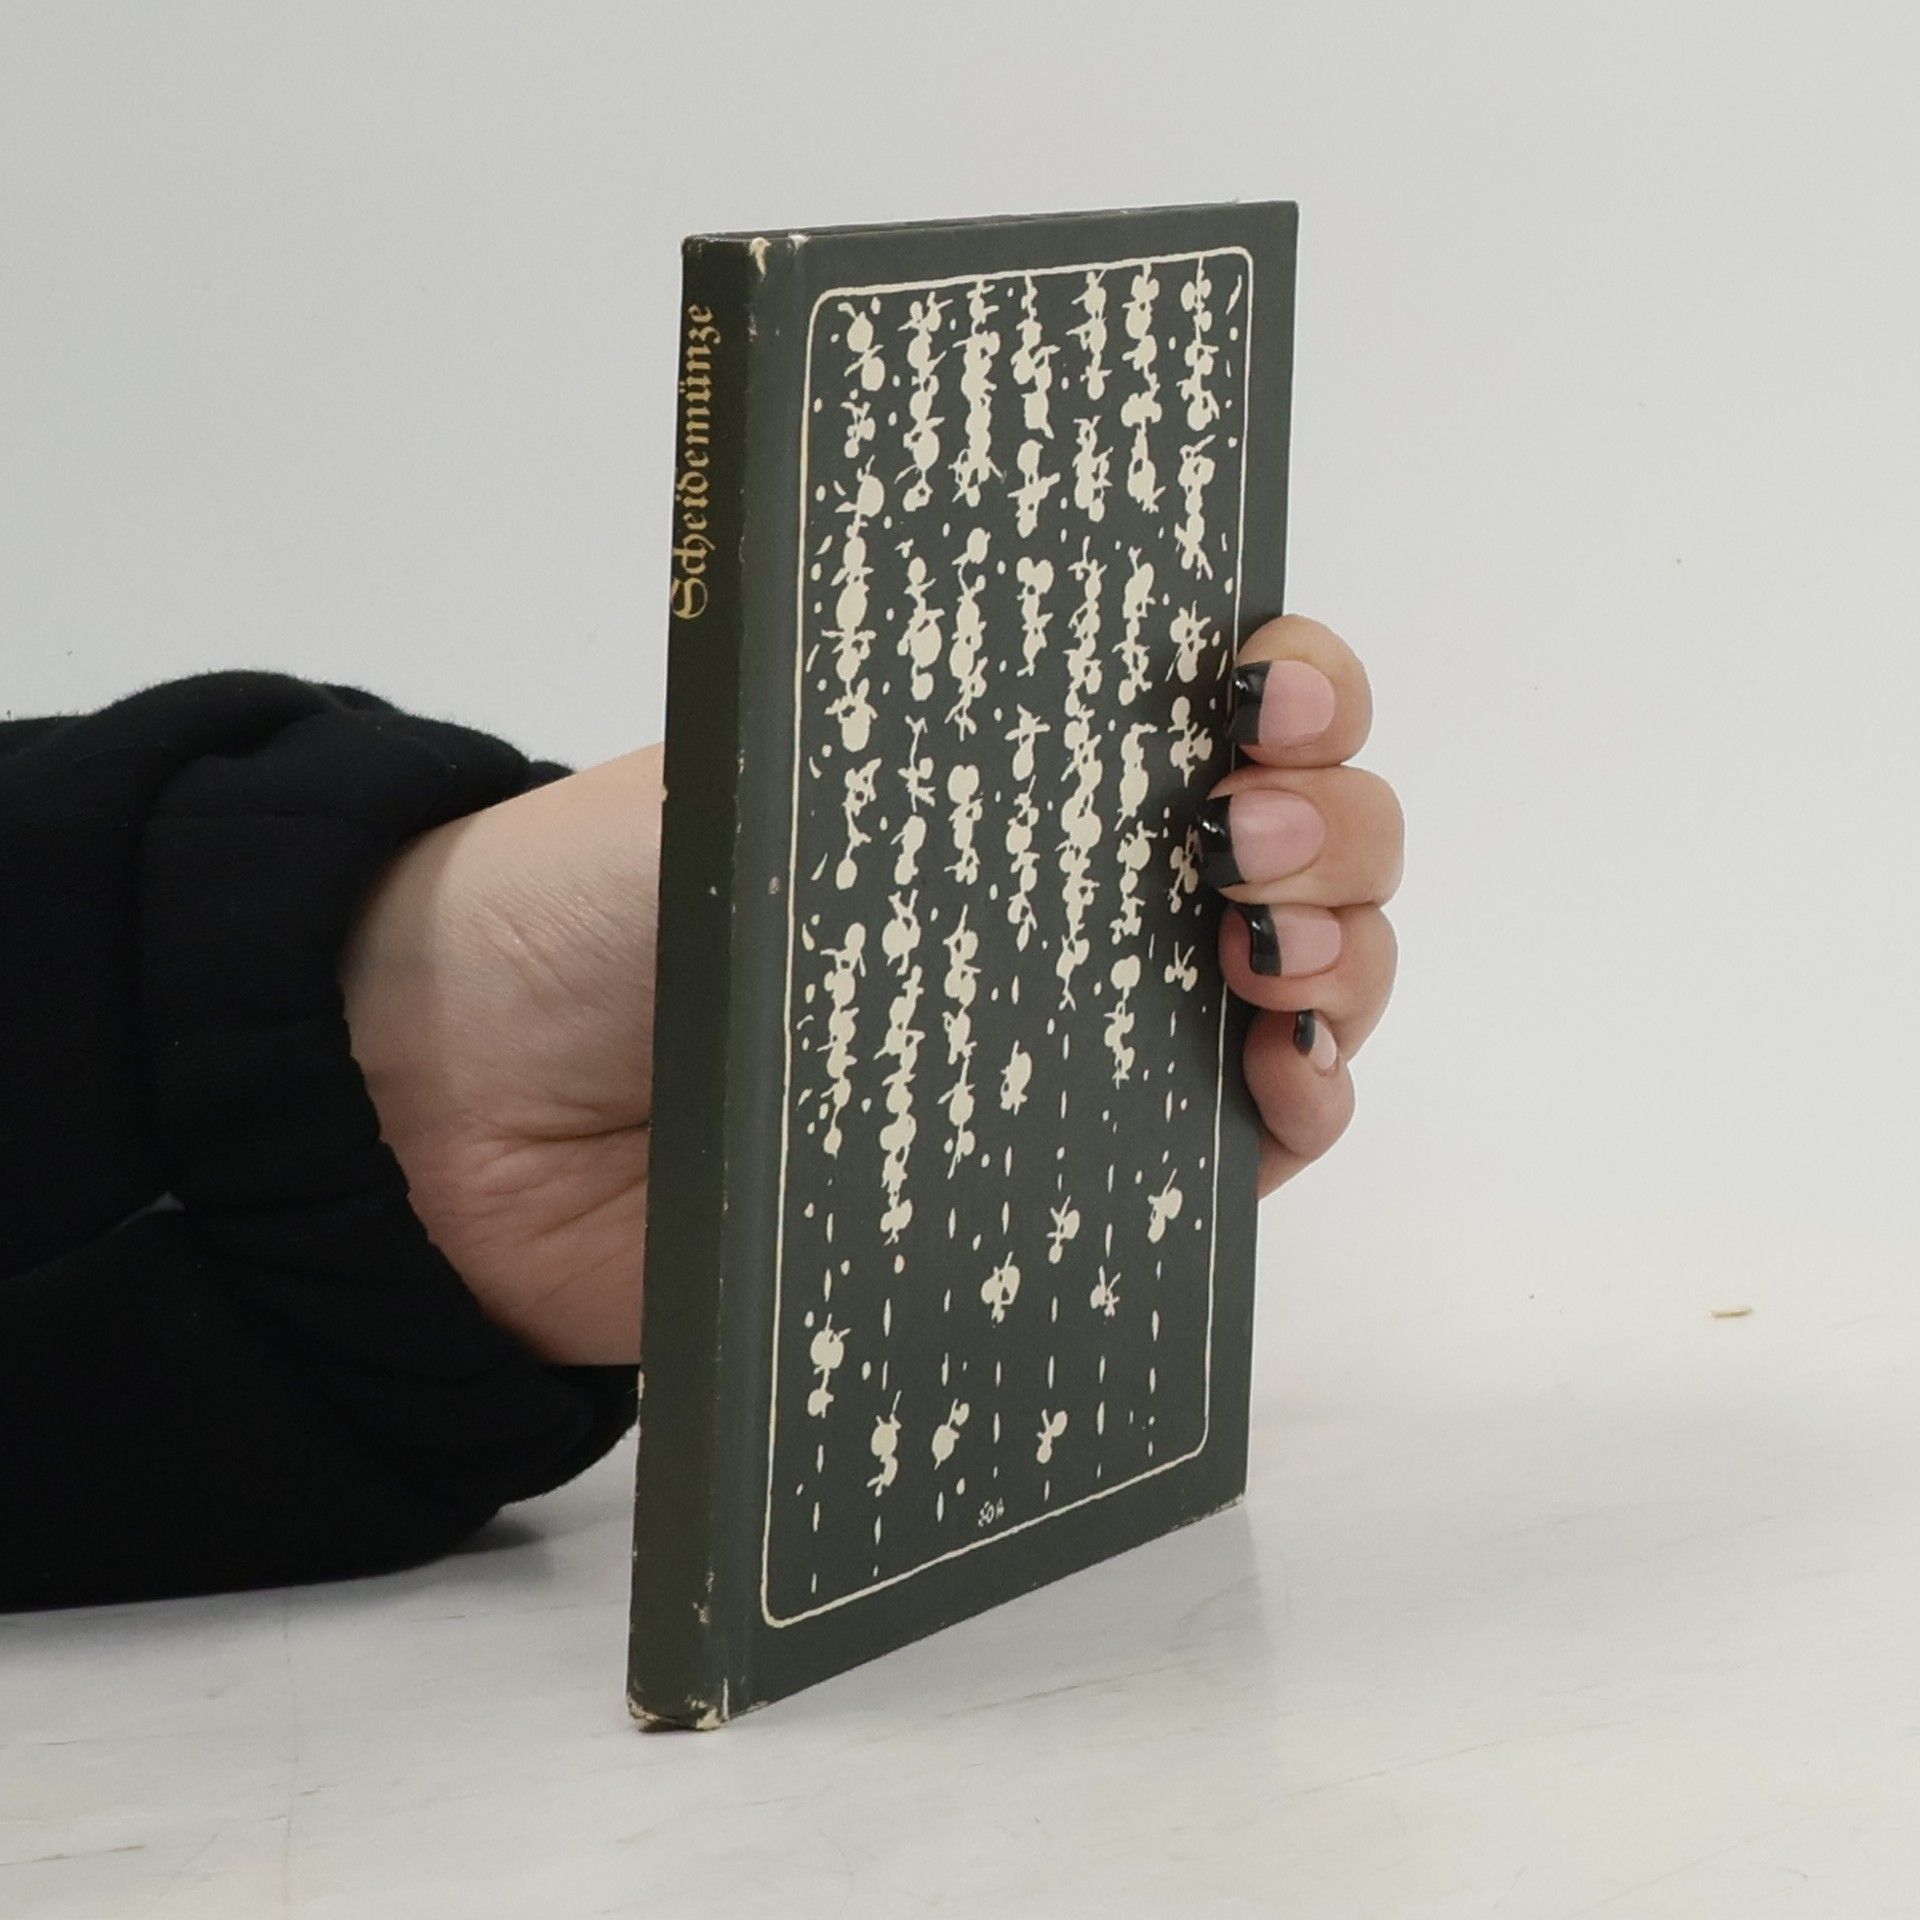 Scheidemünze